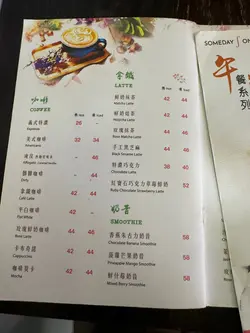 SOMEDAY
ON
午
餐
系
列
拿鐵
LATTE
熱 Hot
冰 Iced
鮮奶抹茶 42 44
Matcha Latte
鮮奶焙茶 42 44
Hojicha Latte
玫瑰抹茶 44 46
Rose Matcha Latte
手工黑芝麻 42 44
Black Sesame Latte
特濃巧克力 42 44
Chocolate Latte
紅寶石巧克力草莓鮮奶 52
Ruby Chocolate Strawberry Latte
奶昔
SMOOTHIE
香蕉朱古力奶昔 58
Chocolate Banana Smoothie
菠蘿芒果奶昔 58
Pineapple Mango Smoothie
鮮什莓奶昔 58
Mixed Berry Smoothie
咖啡
COFFEE
熱 Hot
冰 Iced
義式特濃 26 -
Espresso
美式咖啡 38
Americano
Dirty
拿鐵咖啡 42 44
Cafe Latte
平白咖啡 42
Flat White
玫瑰鮮奶咖啡 44
Rose Latte
卡布奇諾 42 44
Cappuccino
咖啡莫卡 44 46
Mocha